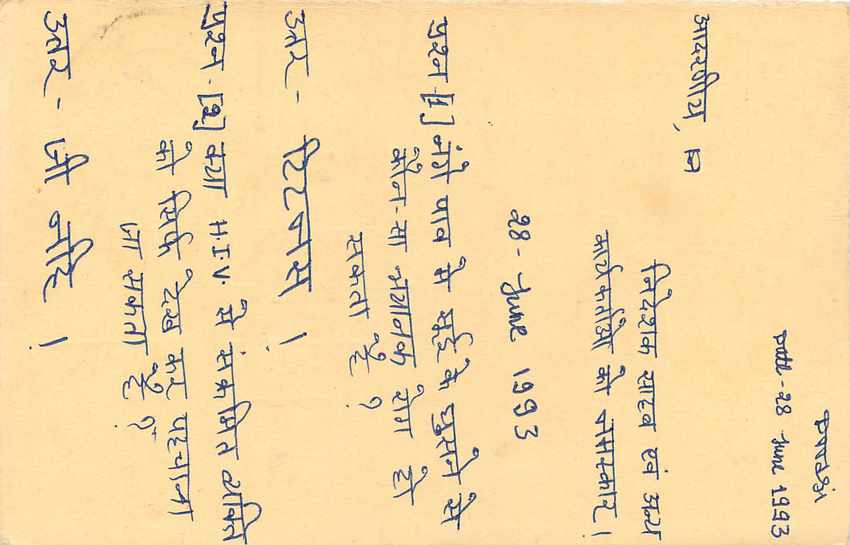 Date - 28 June 1993
आदरणीय,
निदेशक साहब एवं अन्य
कार्यकर्ताओ को नमस्कार।
28 - June 1993
प्रश्न-[1] नंगे पाव मे सूई के घुसने से
कौन-सा भयानक रोग हो
सकता है?
उत्तर - टिटनस !
प्रश्न-[2] क्या H.I.V. से संक्रमित व्यक्ति
को सिर्फ देख कर पहचाना
जा सकता है?
उत्तर - जी नहि !